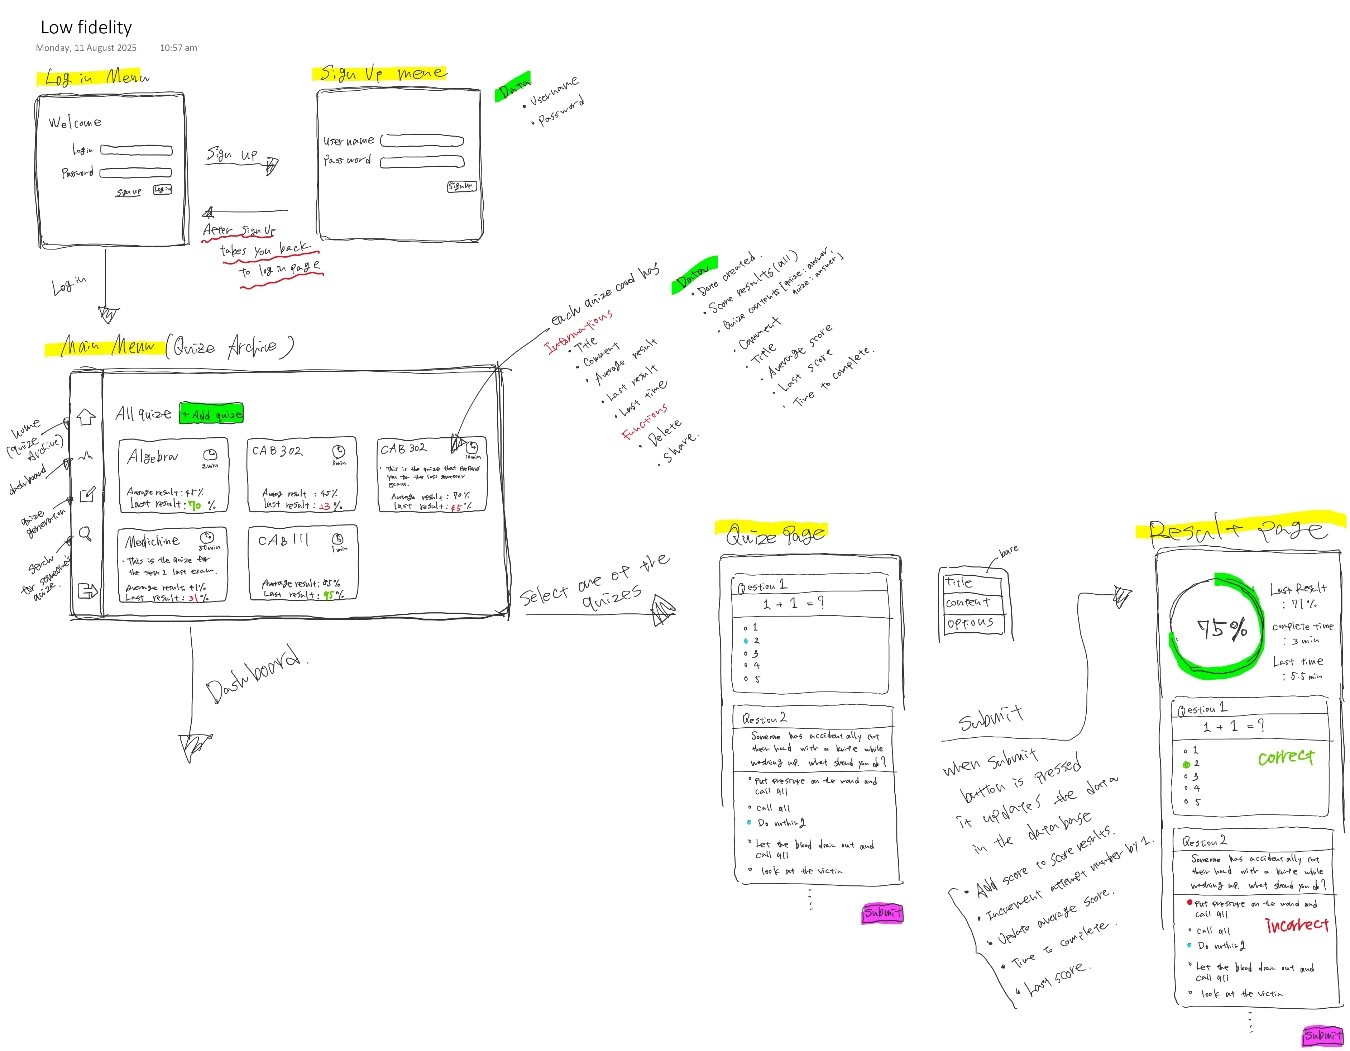 Low fidelity
Monday, 11 August 2025 10:57 am
Log in Menu
Welcome
Login
Password
Sign up
Login
Sign up
After Sign Up
takes you back
to log in page
Sign Up mene
Username
Password
Sign up
Data
• Username
• Password
Login
Main Menu (Quize Archive)
Home
(quize
Archive)
dashboard
quize
generation
Search
for someone's
quize.
All quize
+ Add quize
Algebra
2min
Average result: 45%
Last result: 70 %
CAB 302
3min
Averg result : 45%
last result: 23 %
CAB 302
10min
• This is the quize that
you to the last
exam.
Average result: 70%
Last result: 45 %
Medichine
30min
• This is the quize for
the sem 2 last exam.
Average result: 41%
Last result: 31 %
CAB 111
1min
Average result: 85%
Last result: 95 %
each quize card has
Informations
• Title
• Comment
• Average result
• Last result
• Last time
Functions
• Delete
• Share.
Data
• Date created.
• Score results (all)
• Quize contents [quize: answer,
quize: answer]
• Comment
• Title
• Average score
• Last score
• Time to complete.
Dashboard.
Select one of the
quizes
Quize Page
Qestion 1
1 + 1 = ?
1
2
3
4
5
Qestion 2
Someone has accidentally cut
their hand with a knife while
washing up. what should you do?
Put pressure on the wand and
call 911
call 911
Do nothing
Let the blood drain out and
call 911
look at the victim
Submit
Title
content
options
Submit
when submit
button is pressed
it updates the data
in the database
• Add score to score results.
• Increment attempt number by 1.
• Update average score.
• Time to complete.
• Last score.
Result page
75%
Last Result
: 71%
complete time
: 3 min
Last time
: 5.5 min
Qestion 1
1 + 1 = ?
1
2
3
4
5
correct
Qestion 2
Someone has accidentally cut
their hand with a knife while
washing up. what should you do?
Put pressure on the wand and
call 911
call 911
Do nothing
Let the blood drain out and
call 911
look at the victim
Incorrect
Submit